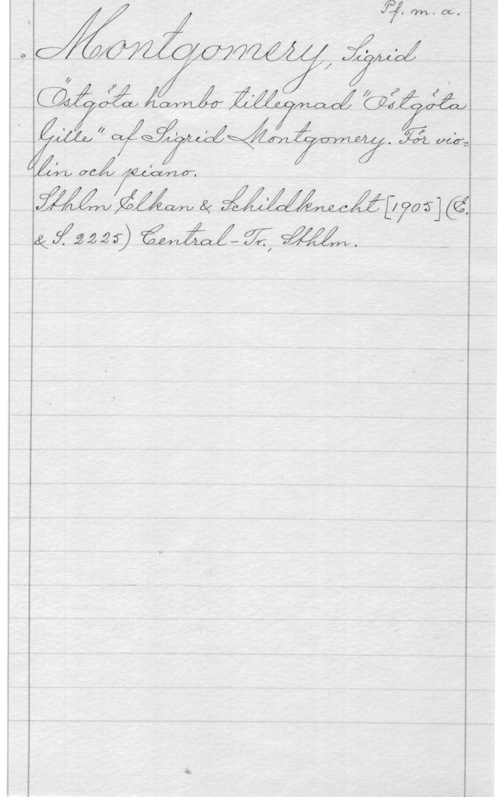 Pf. m. a.
Montgomery, Sigrid
Östgöta hambo tillegnad "Östgöta
Gille" af Sigrid Montgomery. För vio=
lin och piano.
Sthlm Elkan & Schildknecht [1905] (E.
& S. 2225) Central-Tr., Sthlm.